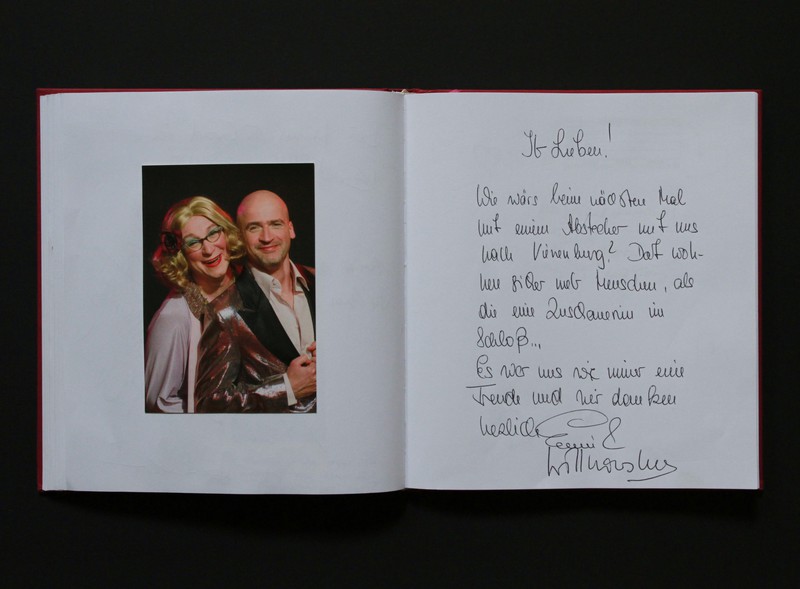 Ihr Lieben!
Wie wärs beim nächsten Mal
mit einem Abstecher mit uns
nach Vienenburg? Dort woh-
nen sicher mehr Menschen, als
die eine Zuschauerin im
Schloß...
Es war uns wie immer eine
Freude und wir danken
herzlich